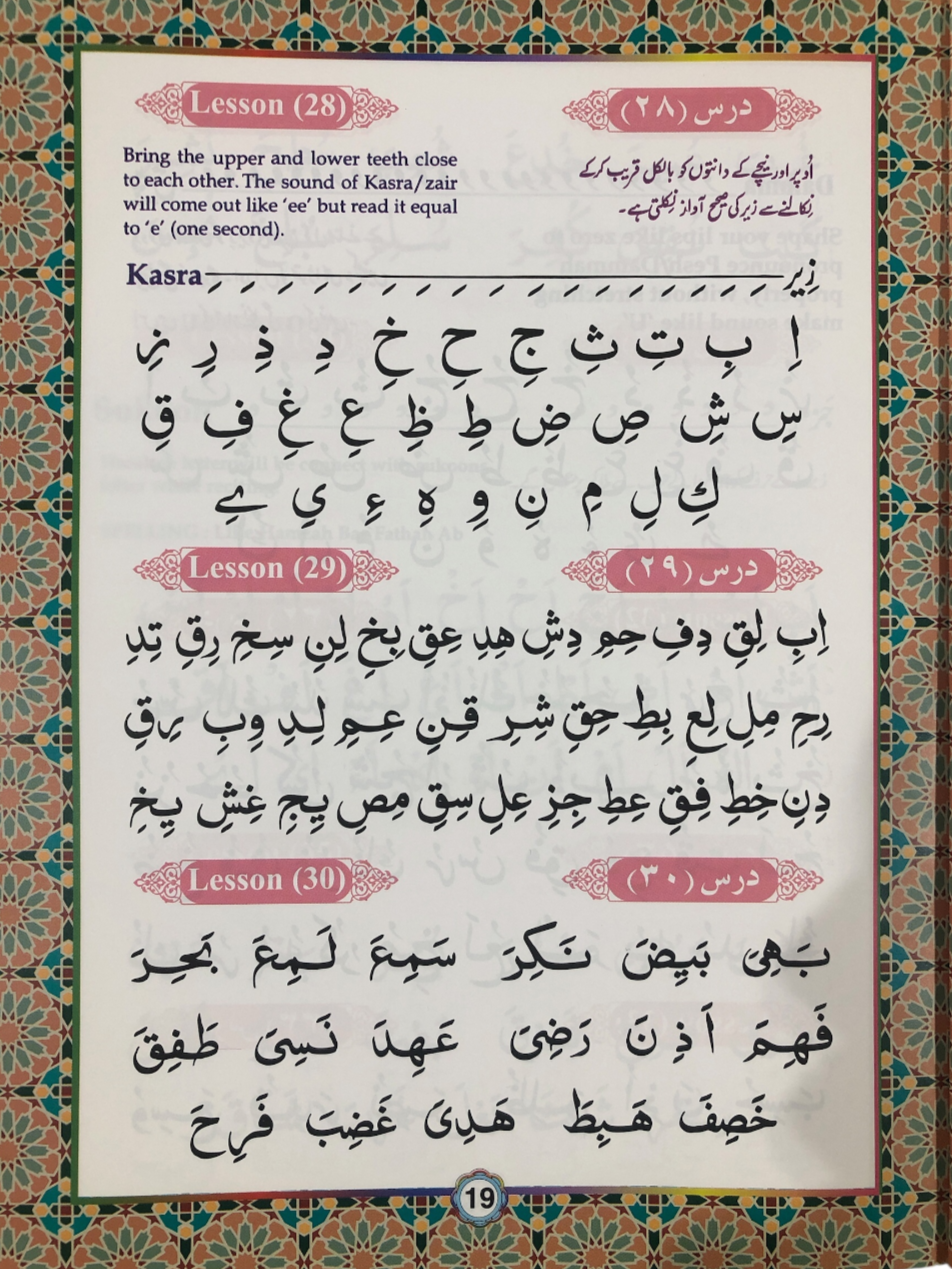 Lesson (28)
درس (۲۸)
Bring the upper and lower teeth close
to each other. The sound of Kasra/zair
will come out like ‘ee’ but read it equal
to ‘e’ (one second).
اُوپر اور نیچے کے دانتوں کو بالکل قریب کرکے
نِکالنے سے زیر کی صحیح آواز نِکلتی ہے۔
Kasra زِیر
اِ بِ تِ ثِ جِ حِ خِ دِ ذِ رِ زِ
سِ شِ صِ ضِ طِ ظِ عِ غِ فِ قِ
كِ لِ مِ نِ وِ ہِ ءِ يِ ےِ
Lesson (29)
درس (۲۹)
اِبِ لِقِ دِفِ حِمِ دِشِ هِدِ عِقِ بِخِ لِنِ سِخِ رِقِ تِدِ
رِحِ مِلِ لِعِ بِطِ حِقِ شِرِ قِنِ عِمِ لِدِ وِبِ يِرِقِ
دِنِ خِطِ فِقِ عِطِ جِزِ عِلِ سِقِ مِصِ يِجِ غِشِ يِخِ
Lesson (30)
درس (۳۰)
بَهِیَ بَيِضَ نَكِرَ سَمِعَ لَمِعَ بَحِرَ
فَهِمَ اَذِنَ رَضِیَ عَهِدَ نَسِیَ طَفِقَ
خَصِفَ هَبِطَ هَدِیَ غَضِبَ فَرِحَ
19